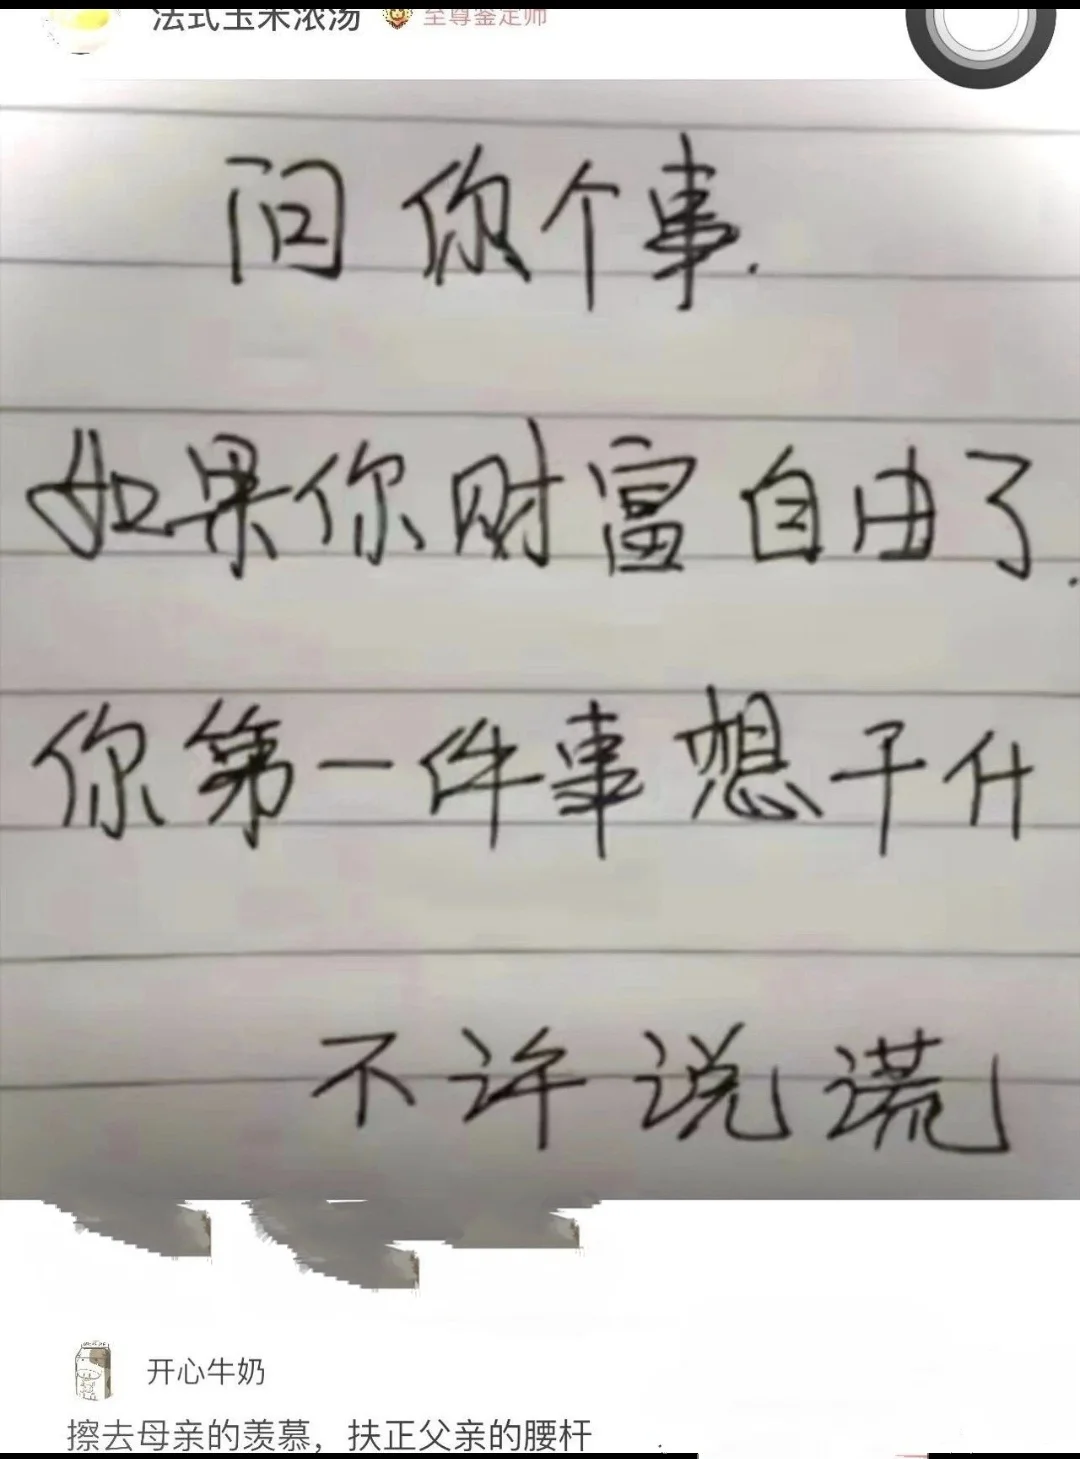 法式玉米浓汤 至尊鉴定师
问你个事.
如果你财富自由了.
你第一件事想干什
不许说谎
开心牛奶
擦去母亲的羡慕，扶正父亲的腰杆